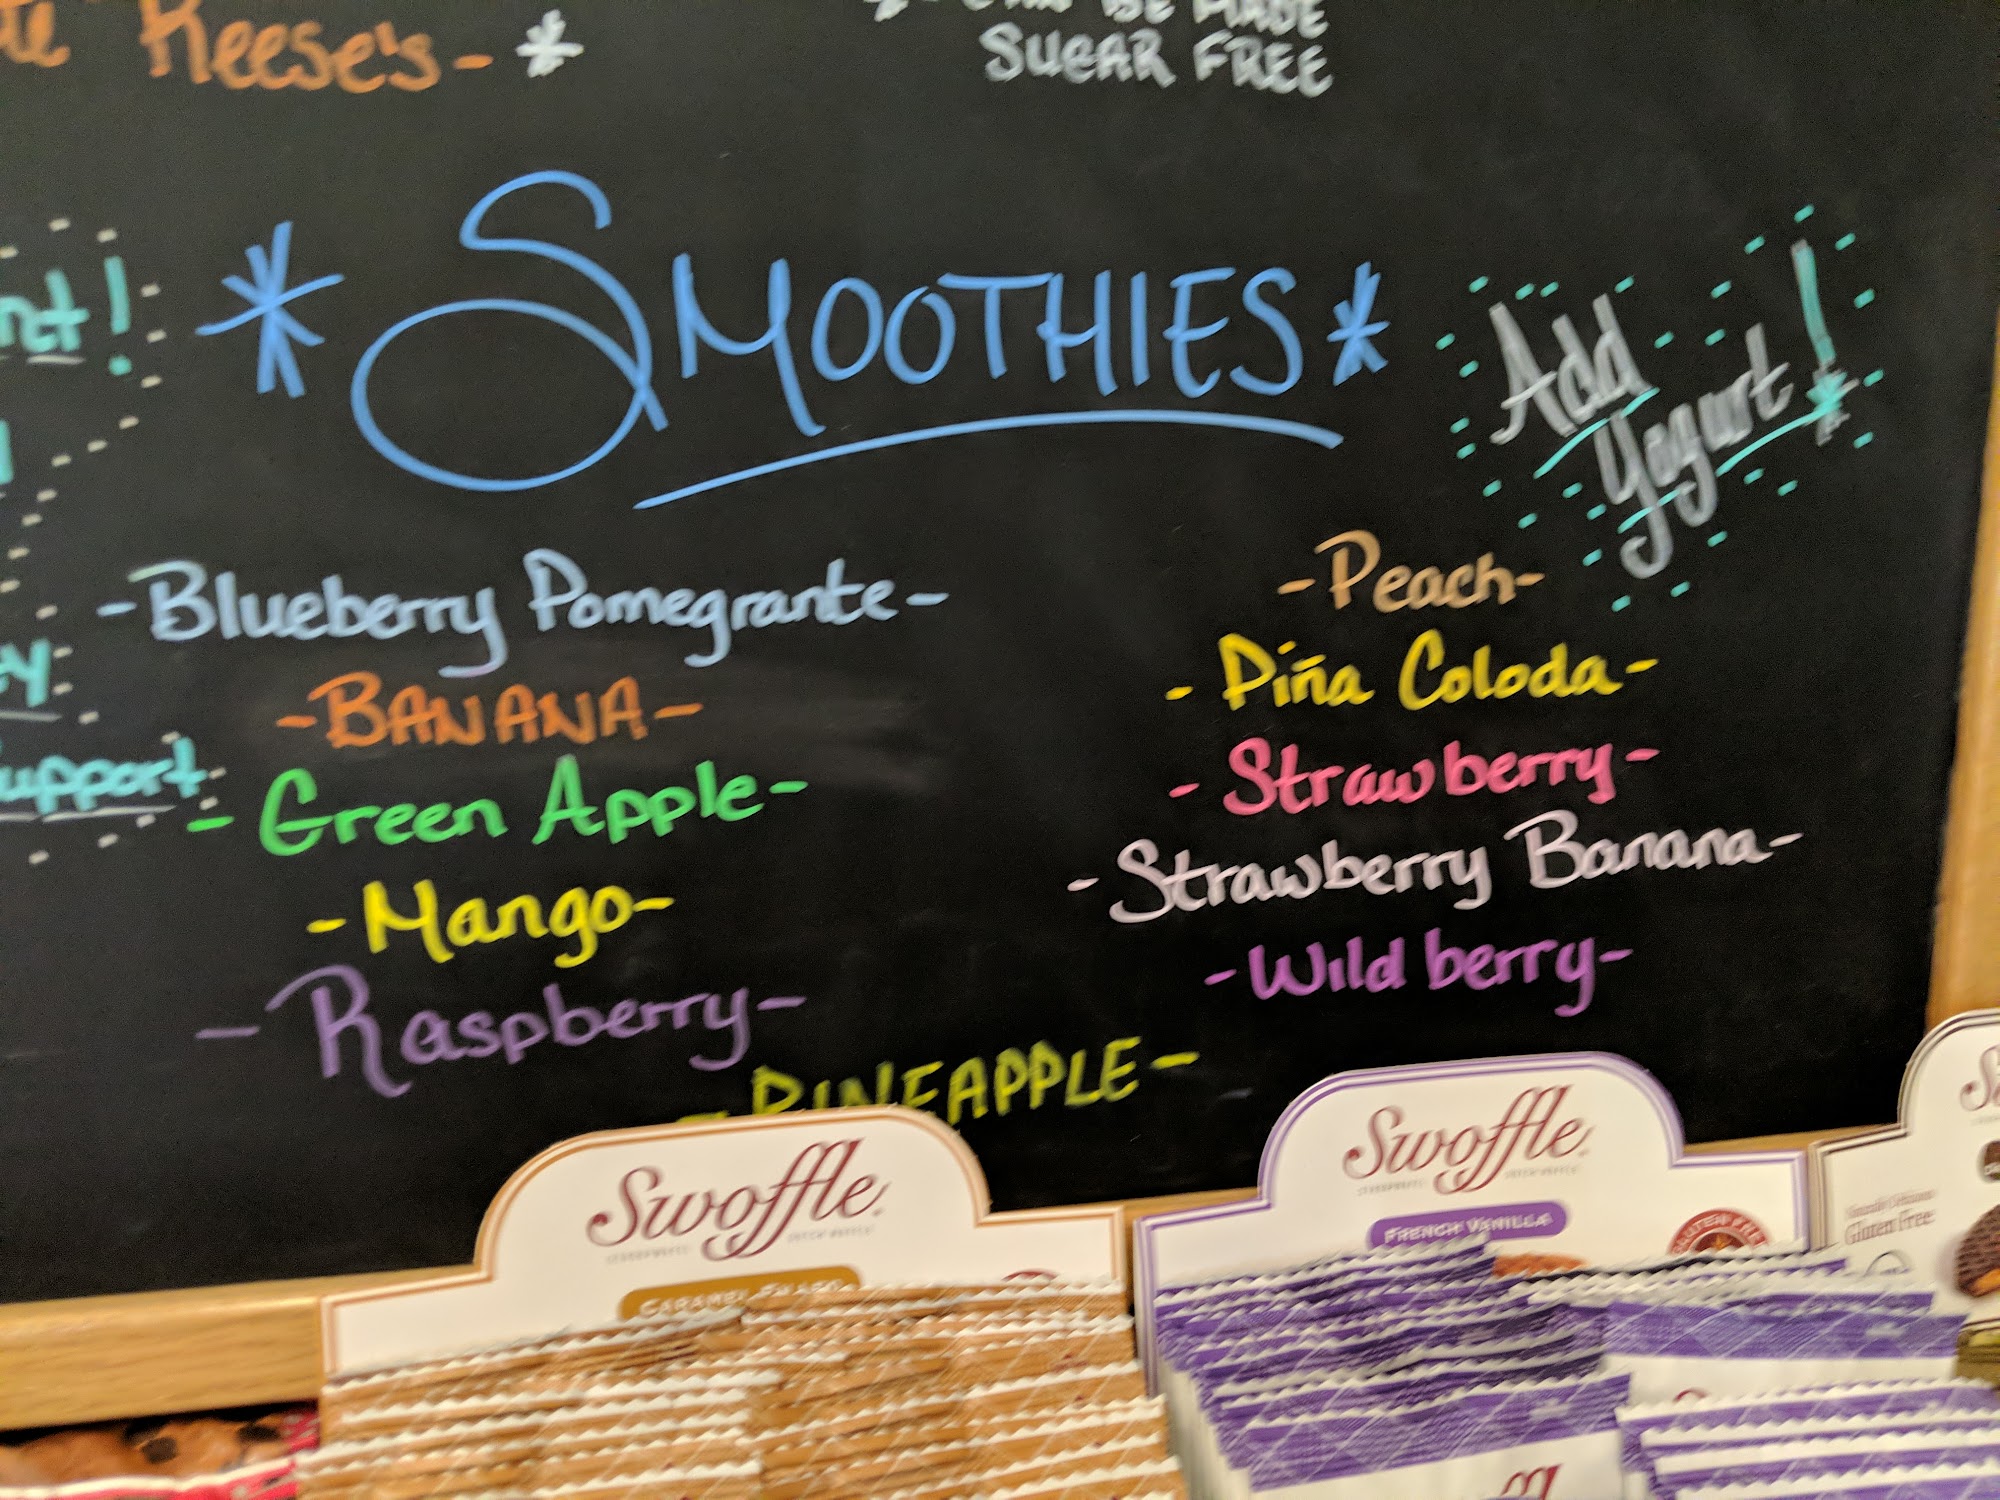 Reese's - *
CAN BE MADE
SUGAR FREE
* SMOOTHIES *
Add
Yogurt!
- Blueberry Pomegrante -
- BANANA -
- Green Apple -
- Mango -
- Raspberry -
- Peach -
- Piña Coloda -
- Strawberry -
- Strawberry Banana -
- Wild berry -
- PINEAPPLE -
Swoffle
Swoffle
FRENCH VANILLA
GLUTEN FREE
Gluten Free
Swoffle